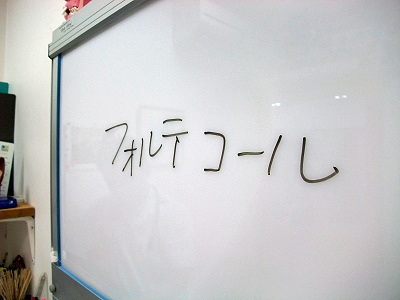 フォルテコール